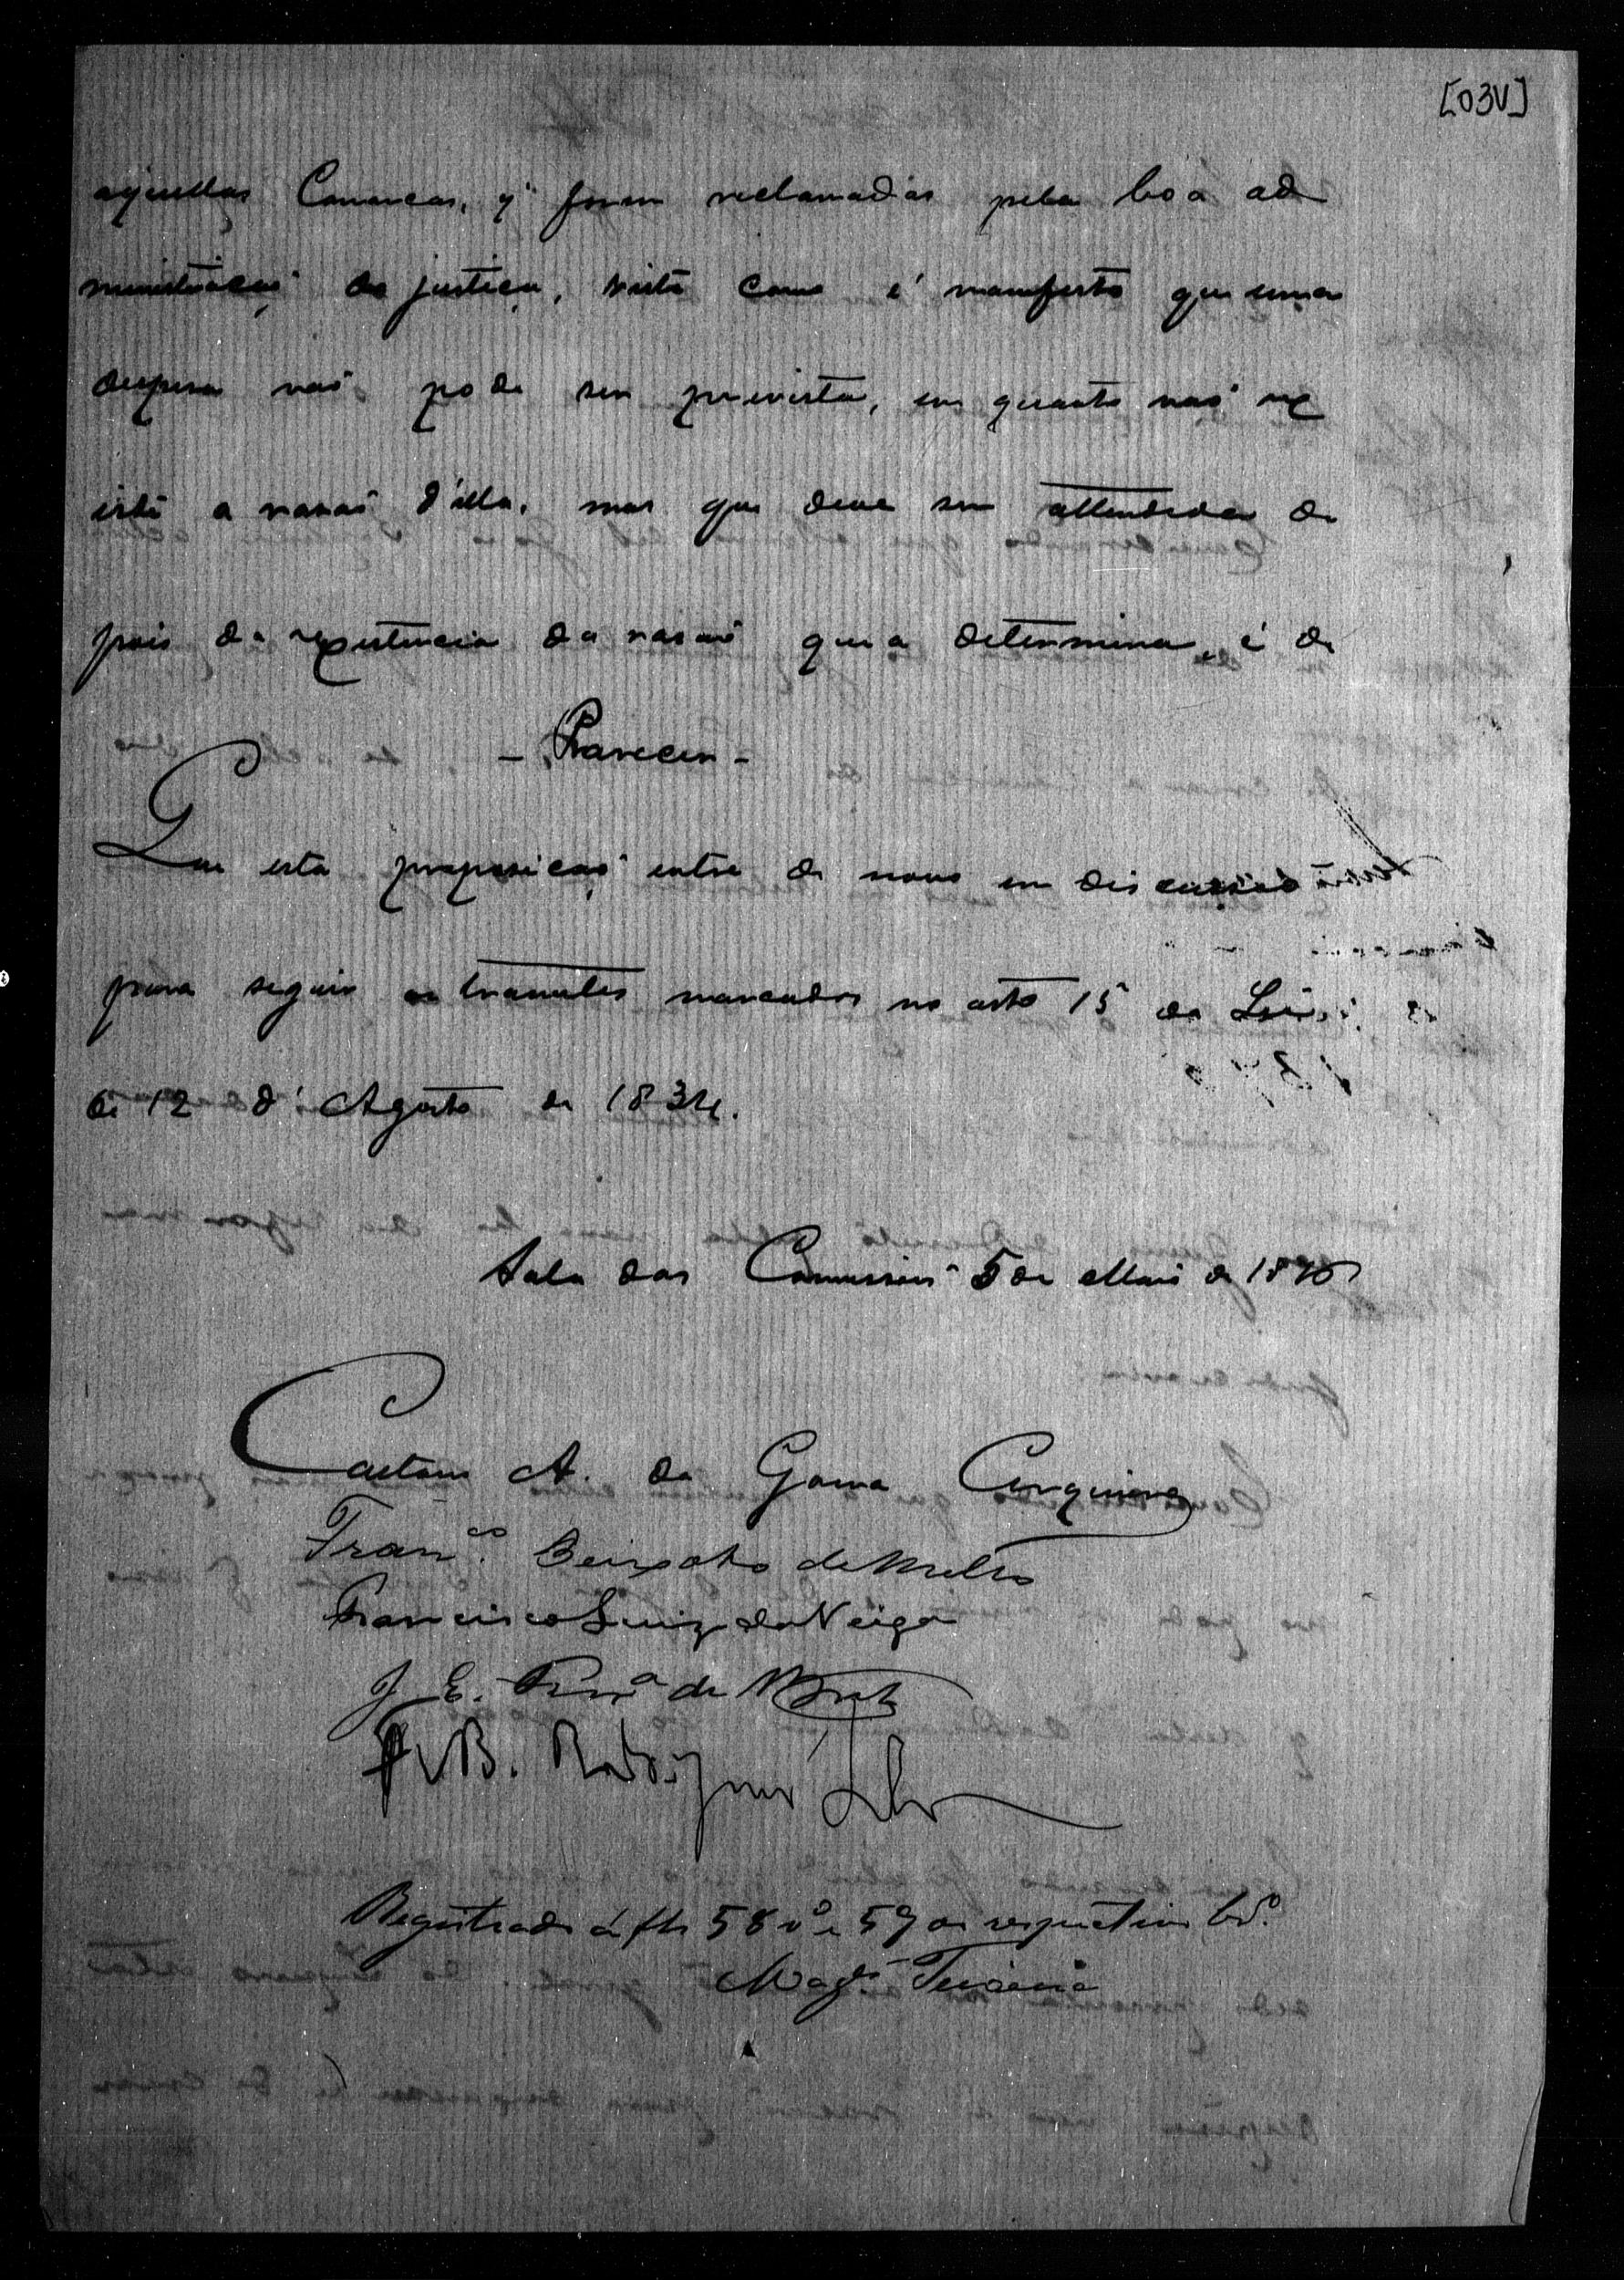 [03V]
aquellas Comarcas, q' foram reclamadas pela boa ad
ministração da justiça, visto como é manifesto que uma
despesa não pode ser prevista, em quanto não ex
iste a rasaõ d'ella, mas que deve ser attendida de
pois da existencia da rasaõ que a determina, é de
- Parecer -
Que esta proposicaõ entre de novo em discussaõ
para seguir os tramites marcados no artº 15 da Lei
de 12 d'Agosto de 1834.
Sala das Commissões 5 de Maio de
Caetano A. da Gama Cerqueira
Franco. Peixoto de Mello
Francisco Luiz da Veiga
J. E. de
B. Rodrigues Silva
Registrado á fls 58 vº e 59 do respectivo
Teixeira